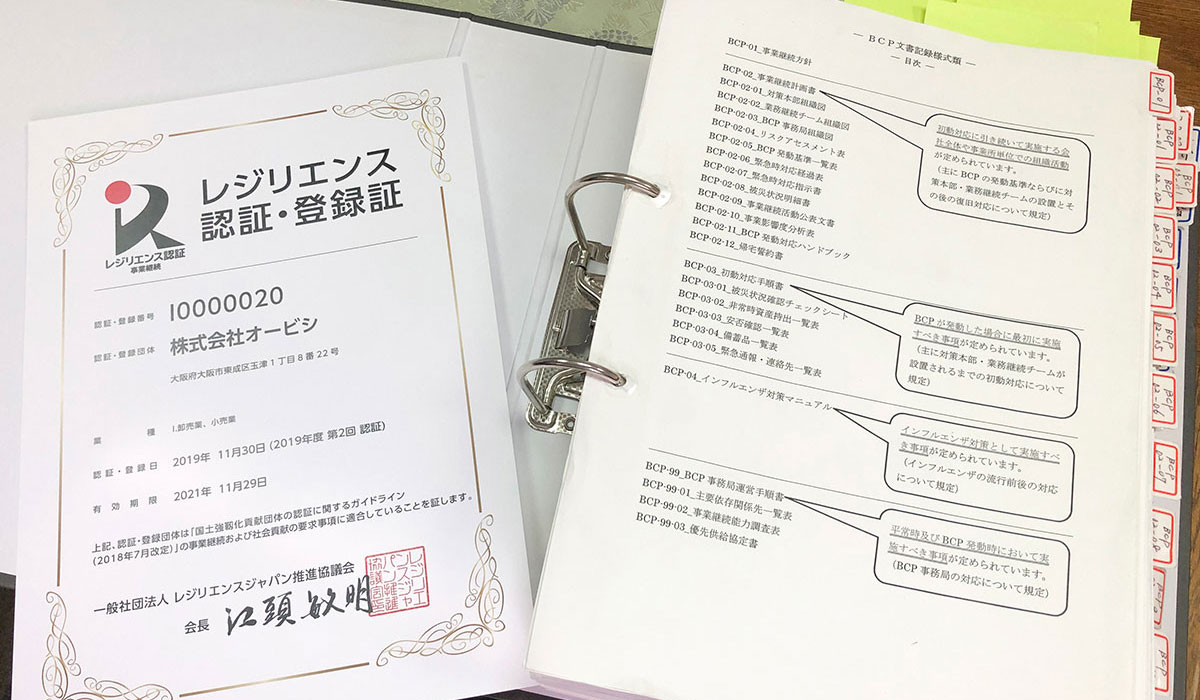 レジリエンス
認証・登録証
レジリエンス認証
事業継続
認証・登録番号 I0000020
認証・登録団体 株式会社オービシ
大阪府大阪市東成区玉津1丁目8番22号
業種 I.卸売業、小売業
認証・登録日 2019年 11月30日 (2019年度 第2回 認証)
有効期限 2021年 11月29日
上記、認証・登録団体は「国土強靱化貢献団体の認証に関するガイドライン
(2018年7月改定)」の事業継続および社会貢献の要求事項に適合していることを証します。
一般社団法人 レジリエンスジャパン推進協議会
会長 江頭敏明
― BCP文書記録様式類 ―
― 目次 ―
BCP-01_事業継続方針
BCP-02_事業継続計画書
BCP-02-01_対策本部組織図
BCP-02-02_業務継続チーム組織図
BCP-02-03_BCP事務局組織図
BCP-02-04_リスクアセスメント表
BCP-02-05_BCP発動基準一覧表
BCP-02-06_緊急時対応経過表
BCP-02-07_緊急時対応指示書
BCP-02-08_被災状況明細書
BCP-02-09_事業継続活動公表文書
BCP-02-10_事業影響度分析表
BCP-02-11_BCP発動対応ハンドブック
BCP-02-12_帰宅誓約書
初動対応に引き続いて実施する会
社全体や事業所単位での組織活動
が定められています。
(主にBCPの発動基準ならびに対
策本部・業務継続チームの設置とそ
の後の復旧対応について規定)
BCP-03_初動対応手順書
BCP-03-01_被災状況確認チェックシート
BCP-03-02_非常時資産持出一覧表
BCP-03-03_安否確認一覧表
BCP-03-04_備蓄品一覧表
BCP-03-05_緊急通報・連絡先一覧表
BCPが発動した場合に最初に実施
すべき事項が定められています。
(主に対策本部・業務継続チームが
設置されるまでの初動対応について
規定)
BCP-04_インフルエンザ対策マニュアル
インフルエンザ対策として実施すべ
き事項が定められています。
(インフルエンザの流行前後の対応
について規定)
BCP-99_BCP事務局運営手順書
BCP-99-01_主要依存関係先一覧表
BCP-99-02_事業継続能力調査表
BCP-99-03_優先供給協定書
平常時及びBCP発動時において実
施すべき事項が定められています。
(BCP事務局の対応について規定)
BCP-01
BCP
02-01
BCP
02-02
BCP
02-03
BCP
02-04
BCP
02-05
BCP
02-06
BCP
02-07
BCP
02-08
BCP